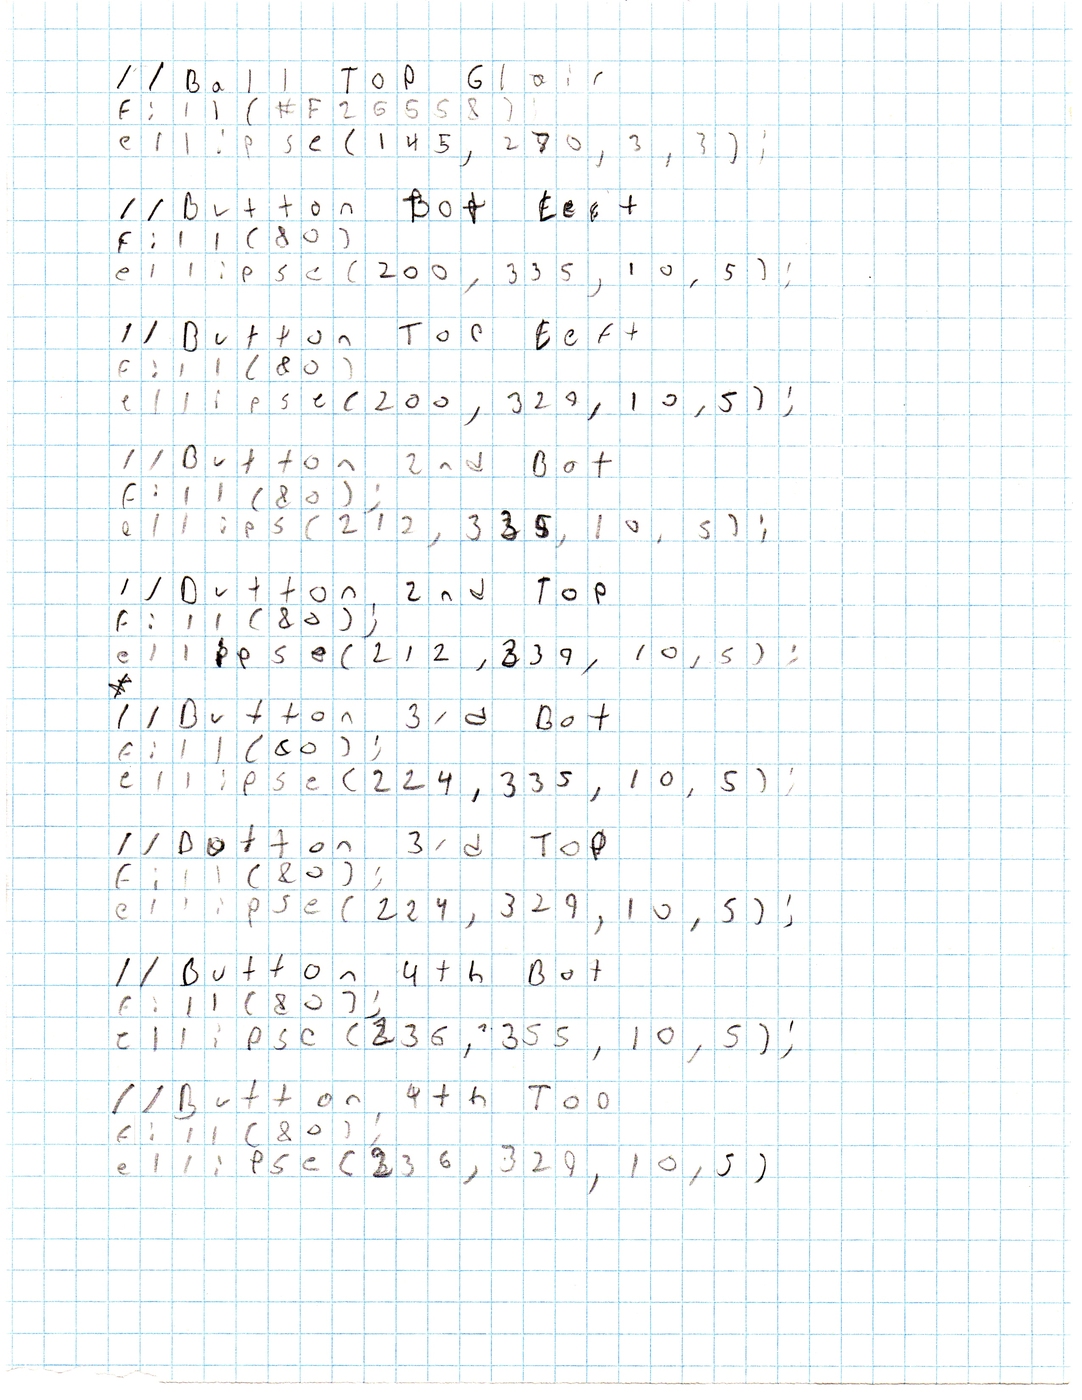 //Ball Top Glair
fill(#F26558);
ellipse(145, 270, 3, 3);
//Button Bot Left
fill(80)
ellipse(200, 335, 10, 5);
//Button Top Left
fill(80)
ellipse(200, 329, 10, 5);
//Button 2nd Bot
fill(80);
ellips(212, 335, 10, 5);
//Button 2nd Top
fill(80);
ellipse(212, 339, 10, 5);
*
//Button 3rd Bot
fill(80);
ellipse(224, 335, 10, 5);
//Button 3rd Top
fill(80);
ellipse(224, 329, 10, 5);
//Button 4th Bot
fill(80);
ellipse(236, 355, 10, 5);
//Button 4th Top
fill(80);
ellipse(236, 329, 10, 5)